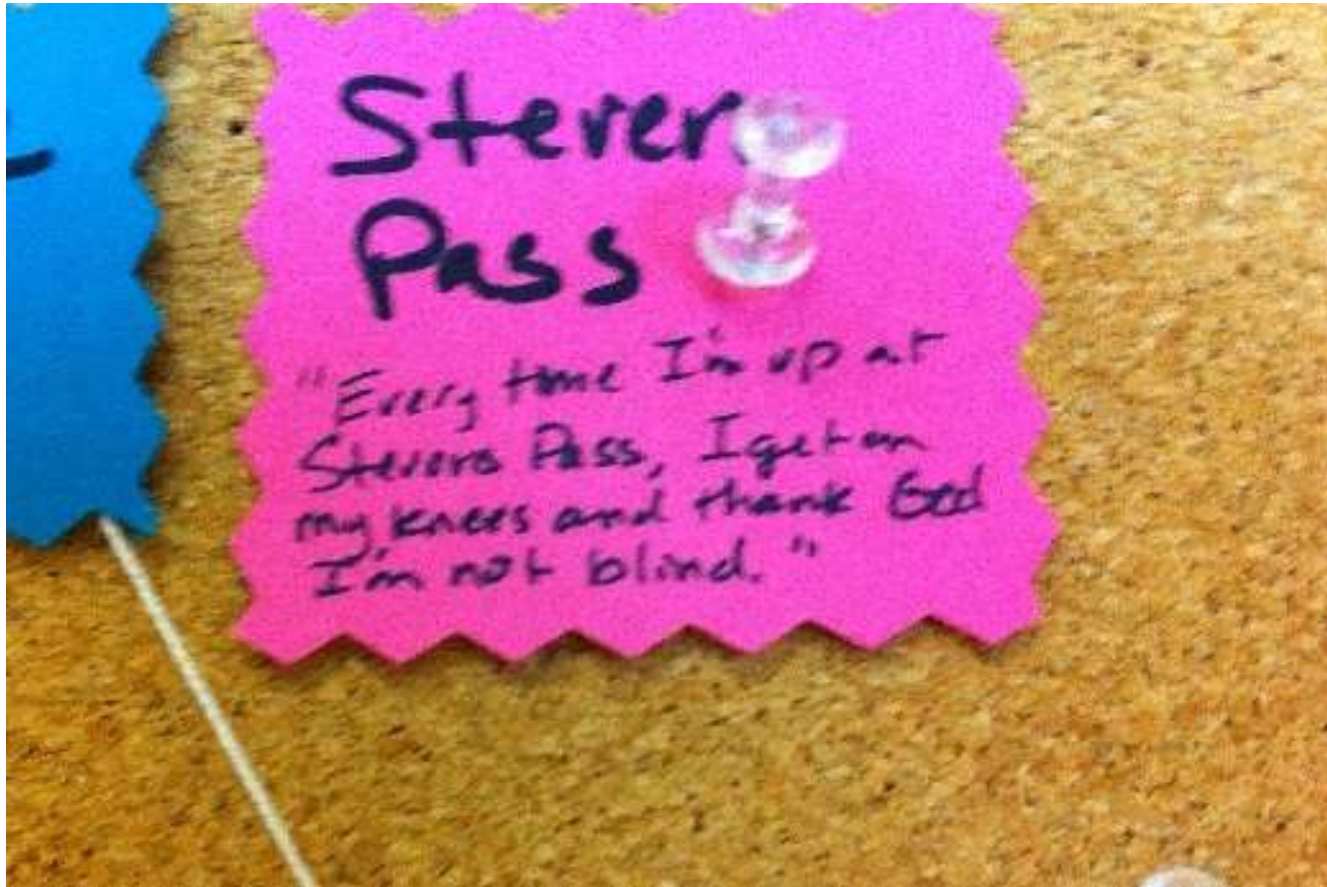 Stevens
Pass
"Every time I'm up at
Stevens Pass, I get on
my knees and thank God
I'm not blind."